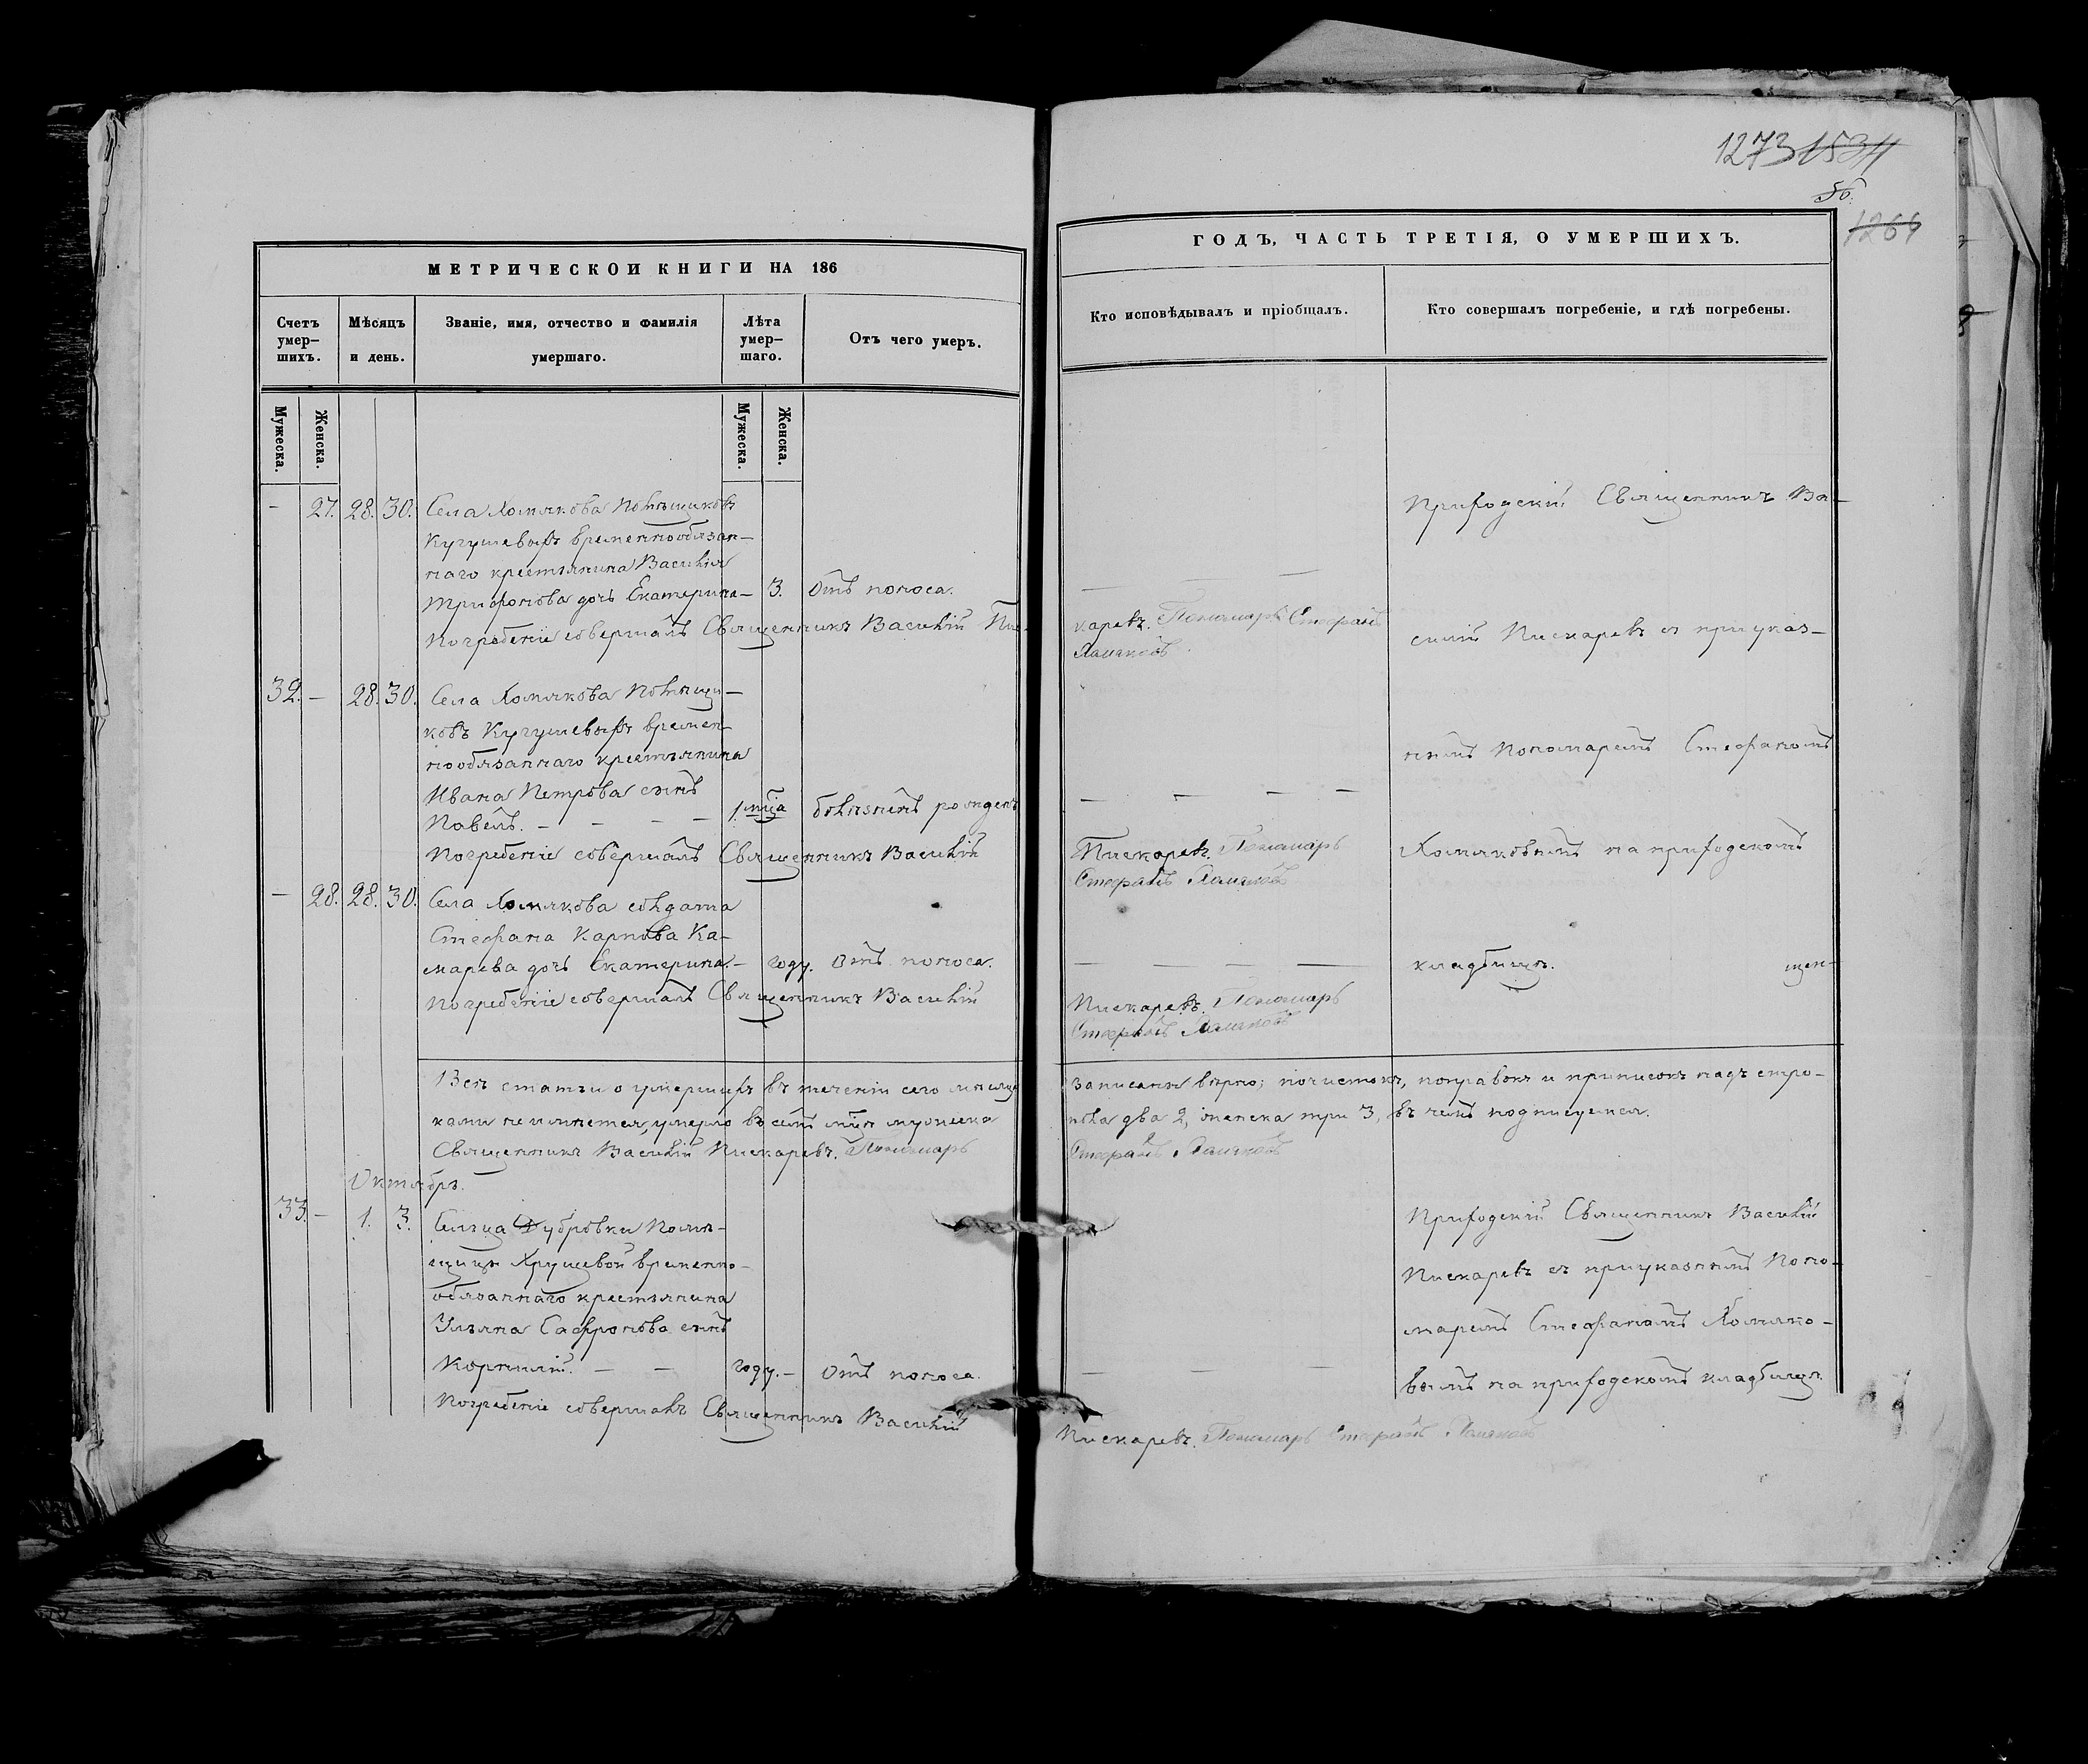 1273 1534
50.
1264
МЕТРИЧЕСКОЙ КНИГИ НА 186
ГОДЪ, ЧАСТЬ ТРЕТІЯ, О УМЕРШИХЪ.
Счетъ умер-шихъ.
Мѣсяцъ и день.
Званіе, имя, отчество и фамилія умершаго.
Лѣта умер-шаго.
Отъ чего умеръ.
Кто исповѣдывалъ и пріобщалъ.
Кто совершалъ погребеніе, и гдѣ погребены.
Мужеска.
Женска.
Мужеска.
Женска.
- 27. 28. 30. Села Хомякова помѣщиковъ
Кугушевыхъ временнообязан-
наго крестьянина Василія
Трифонова дочь Екатерина - 3. Отъ поноса.
Погребеніе совершалъ Священникъ Василій Пис-
каревъ. Пономарь Стефанъ
Хомяковъ.
Приходскій Священникъ Ва-
силій Пискаревъ съ приуказ-
нымъ пономаремъ Стефаномъ
Хомяковымъ на приходскомъ
кладбищѣ.
щен-
32. - 28. 30. Села Хомякова помѣщи-
ковъ Кугушевыхъ времен-
нообязаннаго крестьянина
Ивана Петрова сынъ
Павелъ. - - - - 1 мца болѣзненъ рожденъ
Погребеніе совершалъ Священникъ Василій
Пискаревъ. Пономарь
Стефанъ Хомяковъ
- 28. 28. 30. Села Хомякова солдата
Стефана Карпова Ка-
марева дочь Екатерина. - году. Отъ поноса.
Погребеніе совершалъ Священникъ Василій
Пискаревъ. Пономарь
Стефанъ Хомяковъ
Всѣ статьи о умершихъ въ теченіи сего мѣсяца записаны вѣрно; почистокъ, поправокъ и приписокъ надъ стро-
ками не имѣется, умерло въ семъ мцѣ мужеска пола два 2, женска три 3, въ чемъ подписуемся.
Священникъ Василій Пискаревъ. Пономарь Стефанъ Хомяковъ
Октябрь.
33. - 1. 3. Сельца Дубровки помѣ-
щицы Хрущевой временно-
обязаннаго крестьянина
Ульяна Сафронова сынъ
Корнилій. - - году. - Отъ поноса.
Погребеніе совершалъ Священникъ Василій
Пискаревъ. Пономарь Стефанъ Хомяковъ
Приходскій Священникъ Василій
Пискаревъ съ приуказнымъ поно-
маремъ Стефаномъ Хомяко-
вымъ на приходскомъ кладбищѣ.